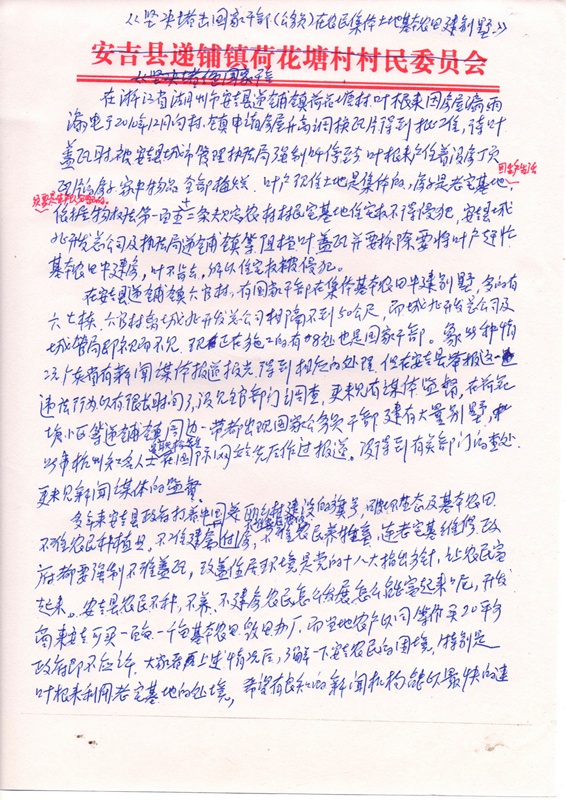 《坚决堵击国家干部(公务员)在农民集体土地基本农田建别墅。》
安吉县递铺镇荷花塘村村民委员会
在浙江省湖州市安吉县递铺镇荷花塘村,叶根来因房屋漏雨
于2010年12月向村.镇申请房屋升高调换瓦片得到批准,待叶
盖瓦时被安吉县城市管理执法局强制叫停至今 叶根来户住着没房顶
回生产生活
的房子 家中物品全部 叶户现住土地是集体的,房子是老宅基地
依据物权法第一百 农村村民宅基地住宅权不得侵犯,安吉县城
北开发总公司及执法局递铺镇 阻拦叶盖瓦并要拆除要将叶户赶出
基本农田中建房,叶不肯去,所以住宅权被侵犯。
在安吉县递铺镇六官村,有国家干部在集体基本农田中建别墅,多的有
六七栋,六官村离城北开发总公司相隔不到50公尺,而城北开发总公司及
城管局即视而不见。现正在施工的有好几处也是国家干部。象此种情
况广东省有新闻媒体报道报告得到相应的处理,但在安吉县举报这一
违法行为以有很长时间了,没见官部门去调查,更未见有媒体监督,在荷花
塘小区等递铺镇周边一带都出现国家公务员干部建有大量别墅,
此事杭州知名人士在国际网站先后作过报道。没得到有关部门的查处
更未见新闻媒体的监督。
多年来安吉县政府打着中国美丽乡村建设的旗号,破坏生态及基本农田
不准农民种植 ,不准建 房,不准农民养猪 ,连老宅基维修,政
府都要强制不准盖瓦,改善住居环境是党的十八大指出方针,让农民富
起来。安吉县农民不种,不养,不建房农民怎么发展怎么能富起来呢,开发
商来安吉可买一百 一千 基本农田 办厂,而当地农户以同等价买20平方
政府即不应许,大家看上述情况后,了解一下安吉农民的困境,特别是
叶根来利用老宅基地的处境,希望有良知的新闻机构能以最快的速